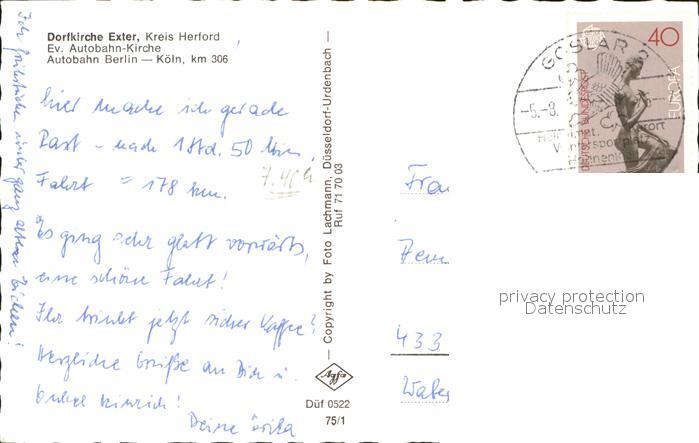 Dorfkirche Exter, Kreis Herford
Ev. Autobahn-Kirche
Autobahn Berlin — Köln, km 306
hier mache ich gerade
Rast - nach 1 Std. 50 Min.
Fahrt = 178 km.
7.40 h
Es ging sehr glatt vorwärts,
eine schöne Fahrt!
Ihr trinkt jetzt sicher Kaffee?
Herzliche Grüße an Dich u.
Onkel Heinrich!
Deine Erika
Ich frühstücke unter ganz alten Eichen!
— Copyright by Foto Lachmann, Düsseldorf-Urdenbach —
Ruf 71 70 03
Agfa
Düf 0522
75/1
GOSLAR 2
-5.-8.
40
EUROPA
DEUTSCHE BUNDESPOST
Frau
433
privacy protection
Datenschutz